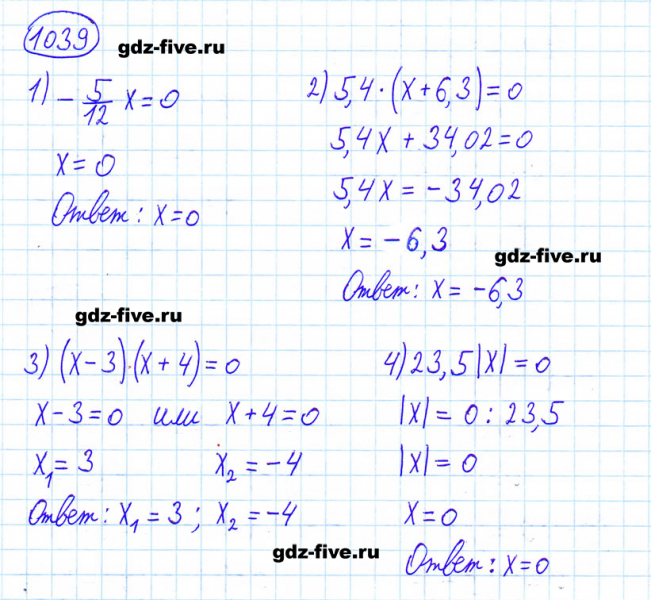 1039
gdz-five.ru
1) - 5/12 x = 0
x = 0
Ответ: x = 0
2) 5,4 · (x + 6,3) = 0
5,4x + 34,02 = 0
5,4x = -34,02
x = -6,3
gdz-five.ru
Ответ: x = -6,3
gdz-five.ru
3) (x - 3) · (x + 4) = 0
x - 3 = 0 или x + 4 = 0
x₁ = 3 x₂ = -4
Ответ: x₁ = 3; x₂ = -4
4) 23,5|x| = 0
|x| = 0 : 23,5
|x| = 0
x = 0
Ответ: x = 0
gdz-five.ru